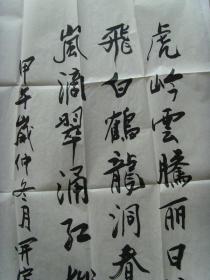 虎岭雲騰丽日
飛白鹤龍洞春
嵐滴翠涌红
甲午歲仲冬月开宝